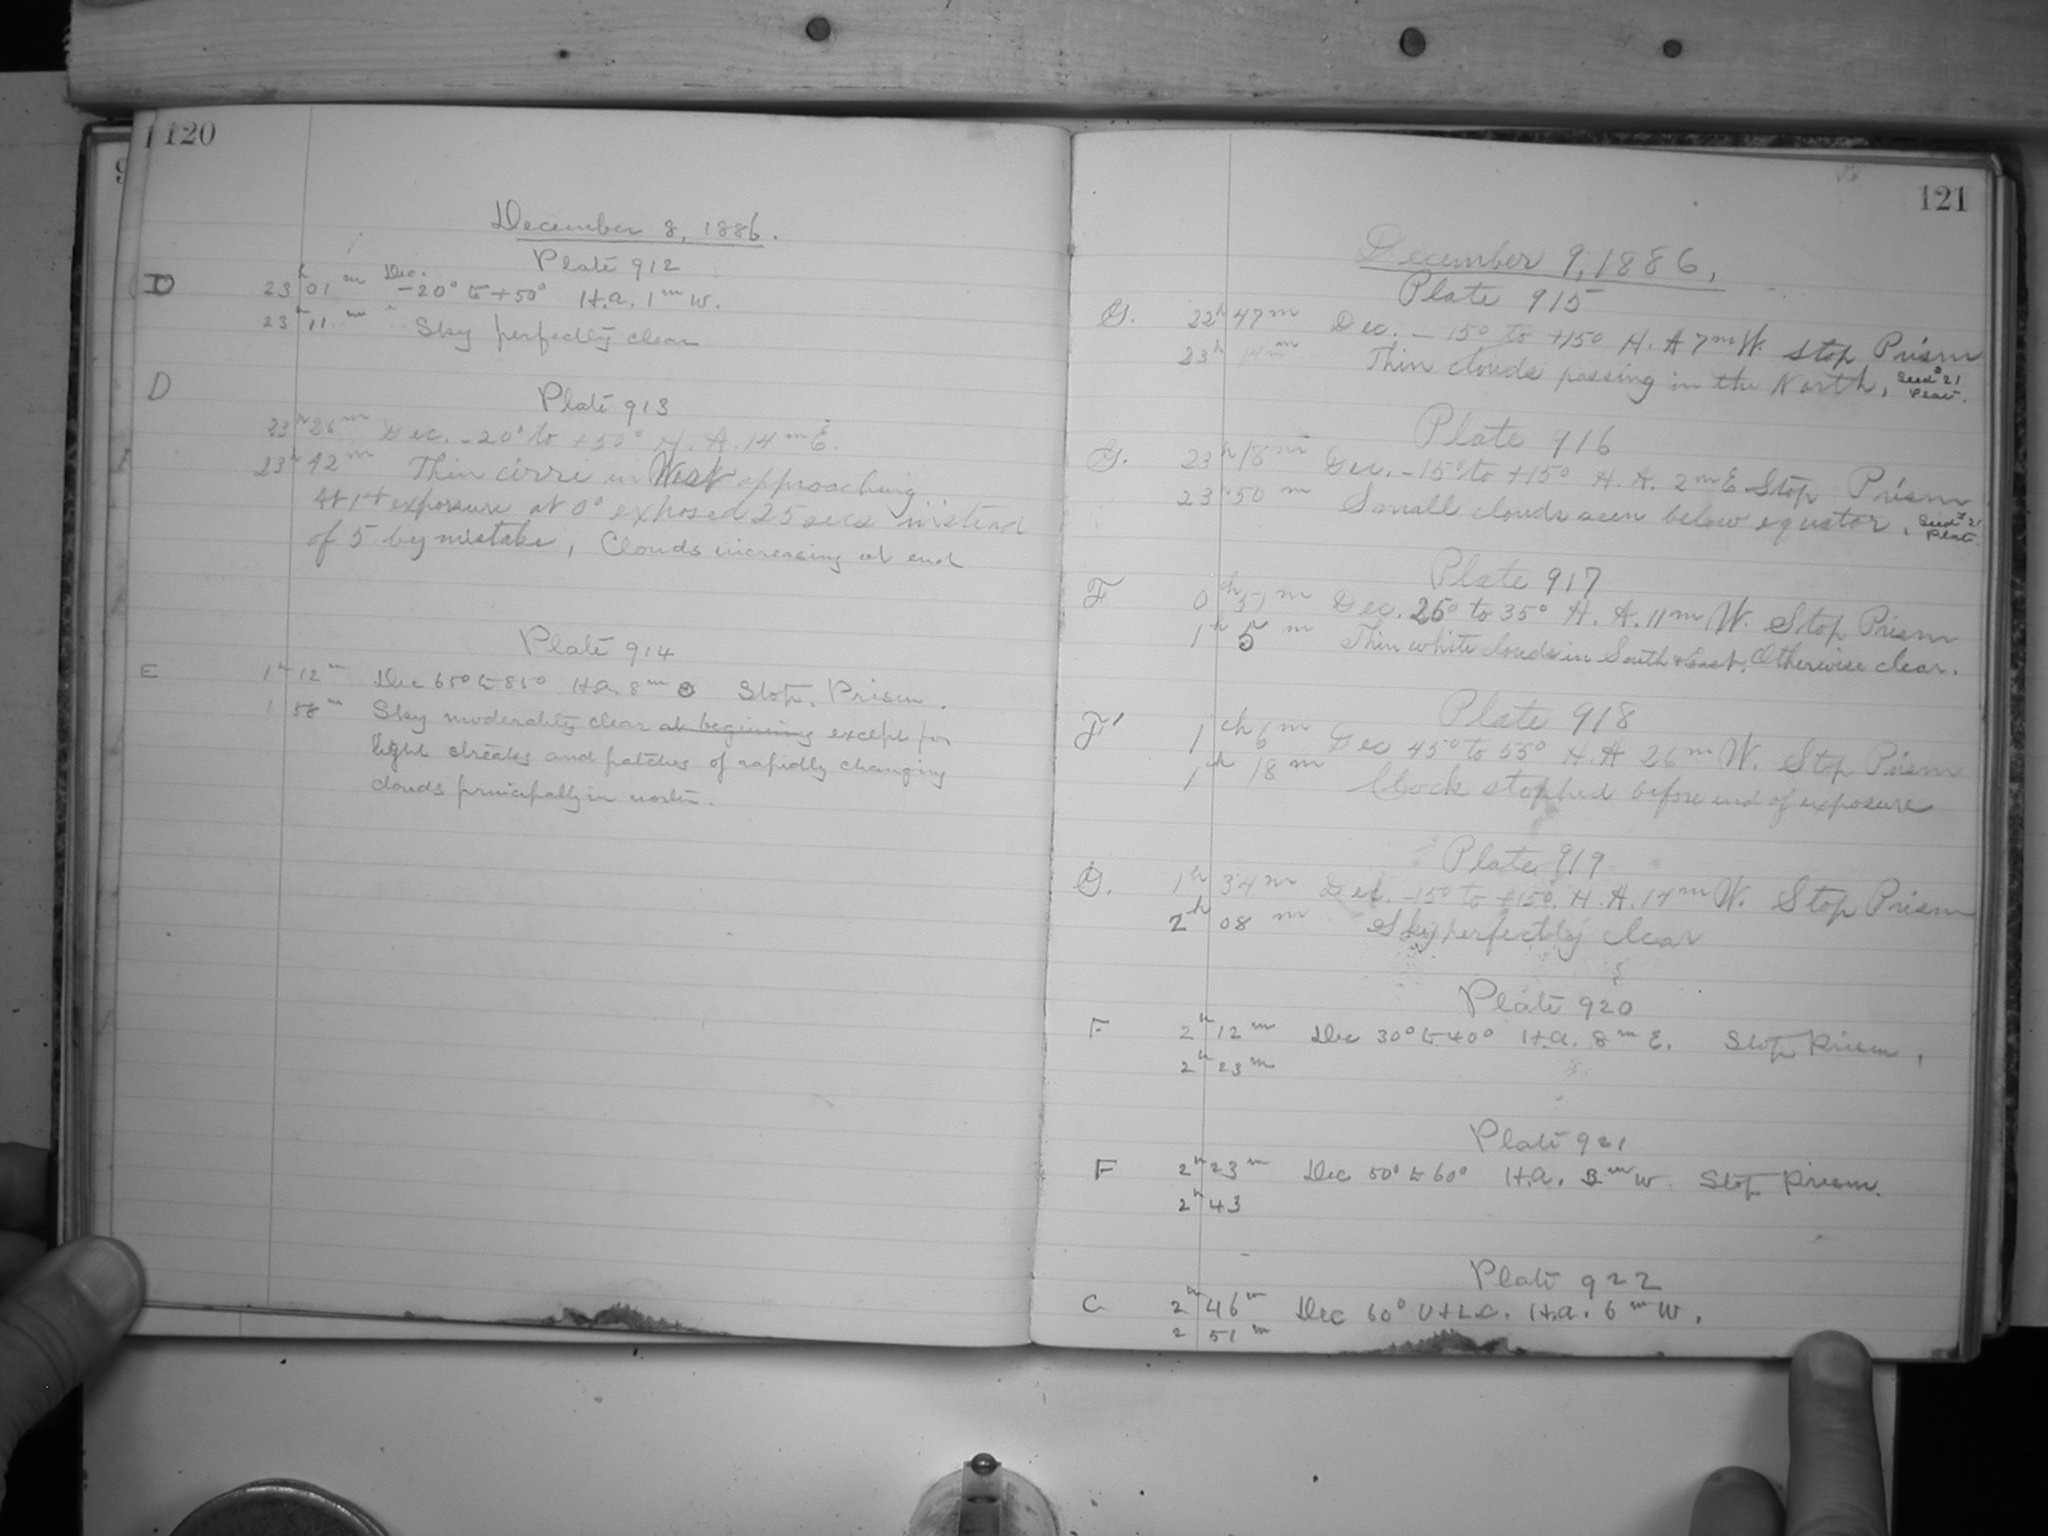 120
December 8, 1886.
Plate 912
D 23h 01m Dec. -20° to +50° H.A. 1m W.
23h 11m Sky perfectly clear
D
Plate 913
23h 26m Dec. -20° to +50° H.A. 14m E.
23h 42m Thin cirri in West approaching.
At 1st exposure at 0° exposed 25 secs instead
of 5 by mistake, Clouds increasing at end
Plate 914
E 1h 12m Dec 65° to 85° H.A. 8m Stop, Prism.
1 58m Sky moderately clear at beginning except for
light streaks and patches of rapidly changing
clouds principally in north.
121
December 9, 1886,
Plate 915
G. 22h 47m Dec. -15° to +15° H.A 7m W. Stop Prism
23h 14m Thin clouds passing in the North, Seed #21 Plate.
Plate 916
G. 23h 18m Dec. -15° to +15° H.A. 2m E Stop Prism
23h 50m Small clouds seen below equator, Seed #21 Plate.
Plate 917
F 0h m Dec. 25° to 35° H.A. 11m W. Stop Prism
1h 5m Thin white clouds in South & East. Otherwise clear.
Plate 918
F 1h 6m Dec 45° to 55° H.A 26m W. Stop Prism
1h 18m Clock stopped before end of exposure
Plate 919
G. 1h 34m Dec. -15° to +15° H.A. 14m W. Stop Prism
2h 08m Sky perfectly clear
Plate 920
F 2h 12m Dec 30° to 40° H.A. 8m E. Stop Prism,
2h 23m
Plate 921
F 2h 23m Dec 50° to 60° H.A. 3m W Stop Prism.
2h 43
Plate 922
C 2h 46m Dec 60° U+L.C. H.A. 6m W.
2 51m